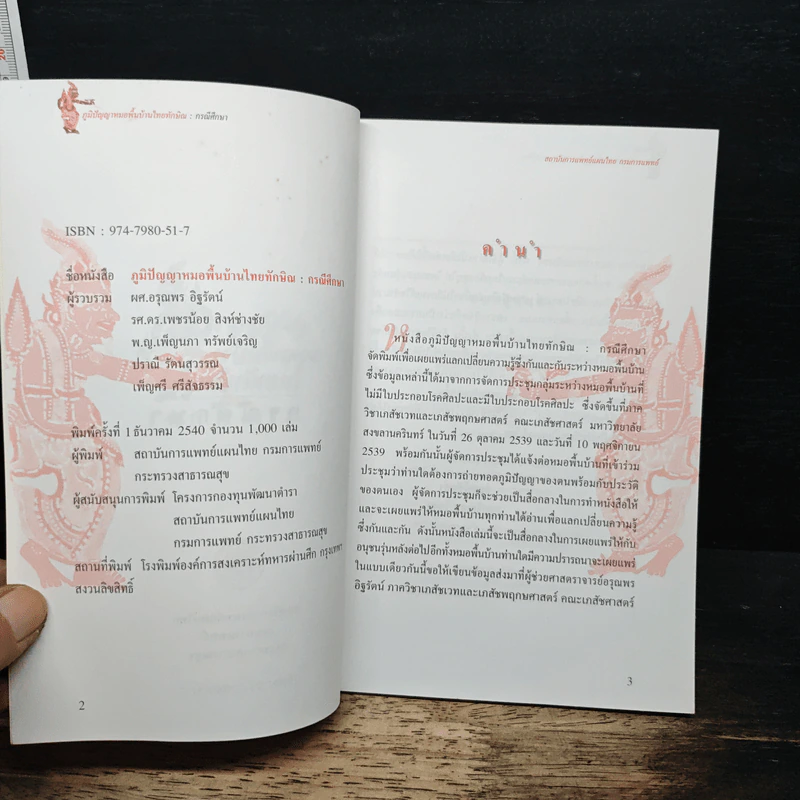 ภูมิปัญญาหมอพื้นบ้านไทยทักษิณ : กรณีศึกษา
ISBN : 974-7980-51-7
ชื่อหนังสือ ภูมิปัญญาหมอพื้นบ้านไทยทักษิณ : กรณีศึกษา
ผู้รวบรวม ผศ.อรุณพร อิฐรัตน์
รศ.ดร.เพชรน้อย สิงห์ช่างชัย
พ.ญ.เพ็ญนภา ทรัพย์เจริญ
ปราณี รัตนสุวรรณ
เพ็ญศรี ศรีสัจธรรม
พิมพ์ครั้งที่ 1 ธันวาคม 2540 จำนวน 1,000 เล่ม
ผู้พิมพ์ สถาบันการแพทย์แผนไทย กรมการแพทย์
กระทรวงสาธารณสุข
ผู้สนับสนุนการพิมพ์ โครงการกองทุนพัฒนาตำรา
สถาบันการแพทย์แผนไทย
กรมการแพทย์ กระทรวงสาธารณสุข
สถานที่พิมพ์ โรงพิมพ์องค์การสงเคราะห์ทหารผ่านศึก กรุงเทพฯ
สงวนลิขสิทธิ์
2
สถาบันการแพทย์แผนไทย กรมการแพทย์
คำนำ
หนังสือภูมิปัญญาหมอพื้นบ้านไทยทักษิณ : กรณีศึกษา
จัดพิมพ์เพื่อเผยแพร่แลกเปลี่ยนความรู้ซึ่งกันและกันระหว่างหมอพื้นบ้าน
ซึ่งข้อมูลเหล่านี้ได้มาจากการจัดการประชุมกลุ่มระหว่างหมอพื้นบ้านที่
ไม่มีใบประกอบโรคศิลปะและมีใบประกอบโรคศิลปะ ซึ่งจัดขึ้นที่ภาค
วิชาเภสัชเวทและเภสัชพฤกษศาสตร์ คณะเภสัชศาสตร์ มหาวิทยาลัย
สงขลานครินทร์ ในวันที่ 26 ตุลาคม 2539 และวันที่ 10 พฤศจิกายน
2539 พร้อมกันนั้นผู้จัดการประชุมได้แจ้งต่อหมอพื้นบ้านที่เข้าร่วม
ประชุมว่าท่านใดต้องการถ่ายทอดภูมิปัญญาของตนพร้อมกับประวัติ
ของตนเอง ผู้จัดการประชุมก็จะเป็นสื่อกลางในการทำหนังสือให้
และจะเผยแพร่ให้หมอพื้นบ้านทุกท่านได้อ่านเพื่อแลกเปลี่ยนความรู้
ซึ่งกันและกัน ดังนั้นหนังสือเล่มนี้จะเป็นสื่อกลางในการเผยแพร่ให้กับ
อนุชนรุ่นหลังต่อไปอีกทั้งหมอพื้นบ้านท่านใดมีความปรารถนาจะเผยแพร่
ในแบบเดียวกันนี้ขอให้เขียนข้อมูลส่งมาที่ผู้ช่วยศาสตราจารย์อรุณพร
อิฐรัตน์ ภาควิชาเภสัชเวทและเภสัชพฤกษศาสตร์ คณะเภสัชศาสตร์
3